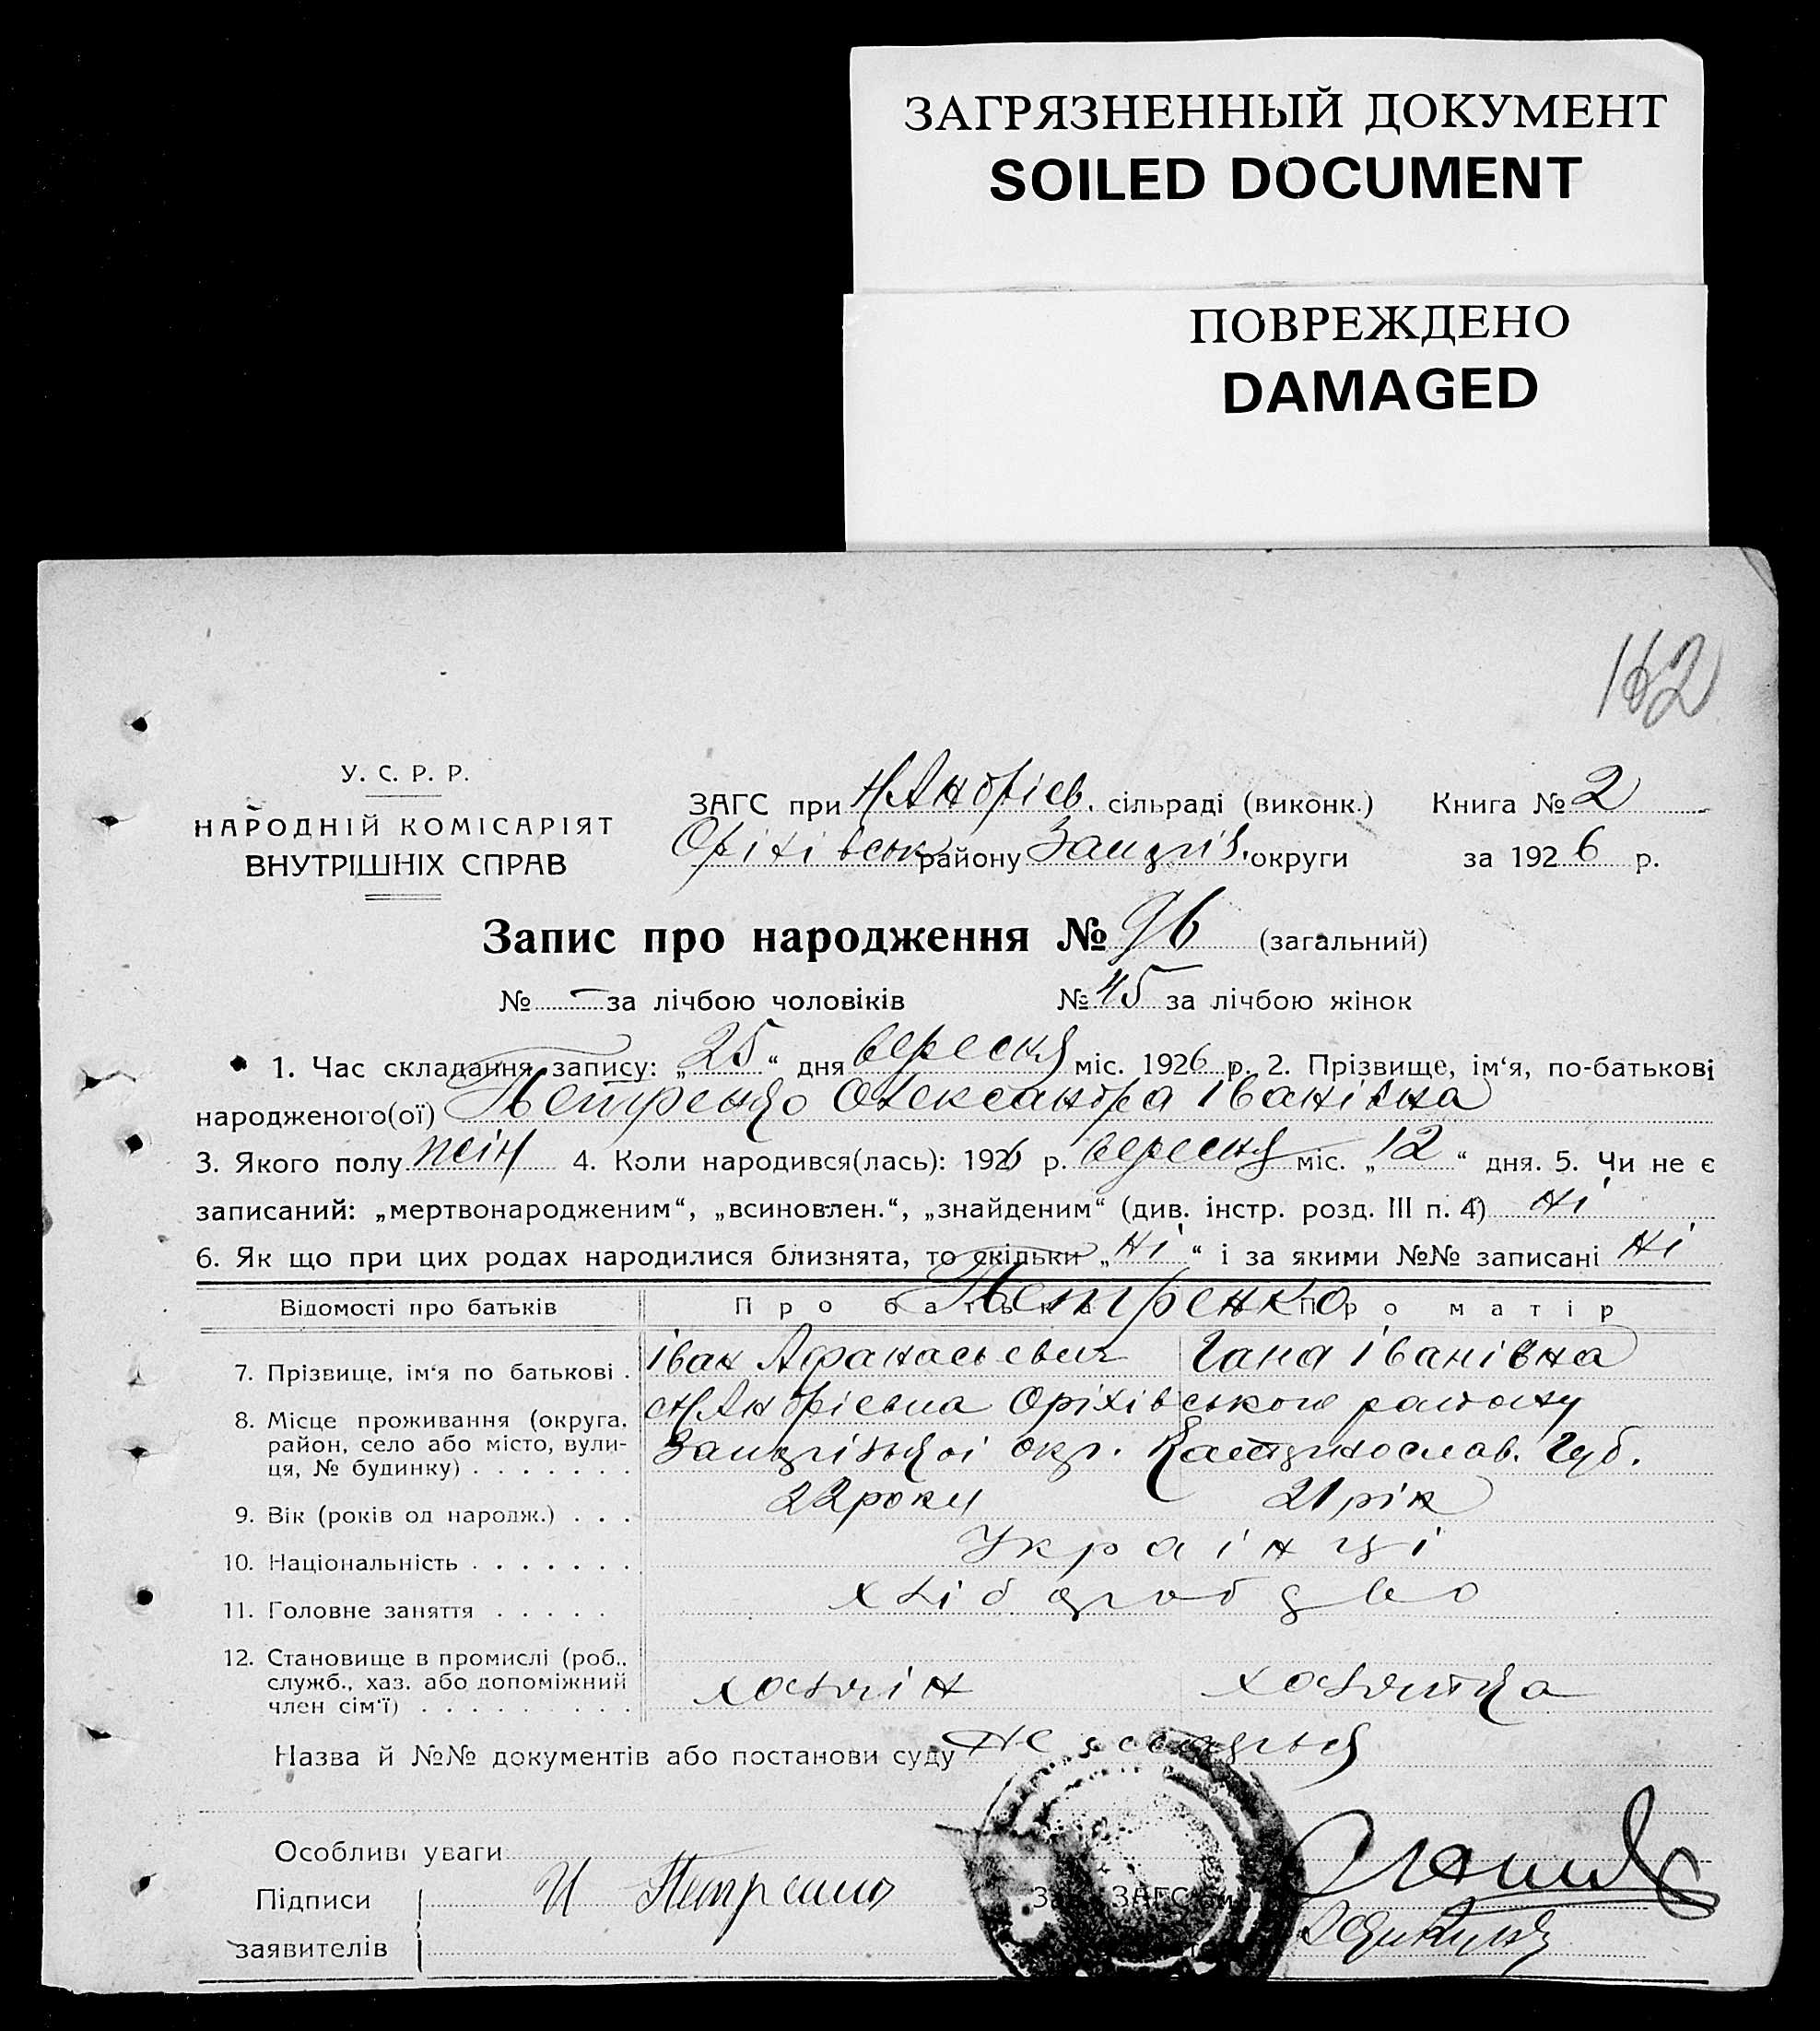 ЗАГРЯЗНЕННЫЙ ДОКУМЕНТ
SOILED DOCUMENT
ПОВРЕЖДЕНО
DAMAGED
162
У. С. Р. Р.
НАРОДНІЙ КОМІСАРІЯТ
ВНУТРІШНІХ СПРАВ
ЗАГС при Н Андрієв. сільраді (виконк.) Книга № 2
Оріхівськ району Запоріз. округи за 1926 р.
Запис про народження № 96 (загальний)
№ - за лічбою чоловіків № 45 за лічбою жінок
1. Час складання запису: „25“ дня вересня міс. 1926 р. 2. Прізвище, ім'я, по-батькові
народженого(ої) Петренко Олександра Іванівна
3. Якого полу жін 4. Коли народився(лась): 1926 р. вересня міс. „12“ дня. 5. Чи не є
записаний: „мертвонародженим“, „всиновлен.“, „знайденим“ (див. інстр. розд. III п. 4) ні
6. Як що при цих родах народилися близнята, то скільки „ні“ і за якими №№ записані ні
Відомості про батьків Про батька Про матір
Петренко
7. Прізвище, ім'я по батькові . Іван Афанасьевич Гана Іванівна
8. Місце проживання (округа, Н Андрієвка Оріхівського району
район, село або місто, вули- Запорізької окр. Катеринослав. Губ.
ця, № будинку) . . . . . . .
9. Вік (років од народж.) . . . 22 роки 21 рік
10. Національність . . . . . . . Українці
11. Головне заняття . . . . . хліборобство
12. Становище в промислі (роб.,
служб., хаз. або допоміжний хазяїн хазяйка
член сім'ї) . . . . . . . . .
Назва й №№ документів або постанови суду не
Особливі уваги
Підписи И Петренко ЗАГС
заявителів